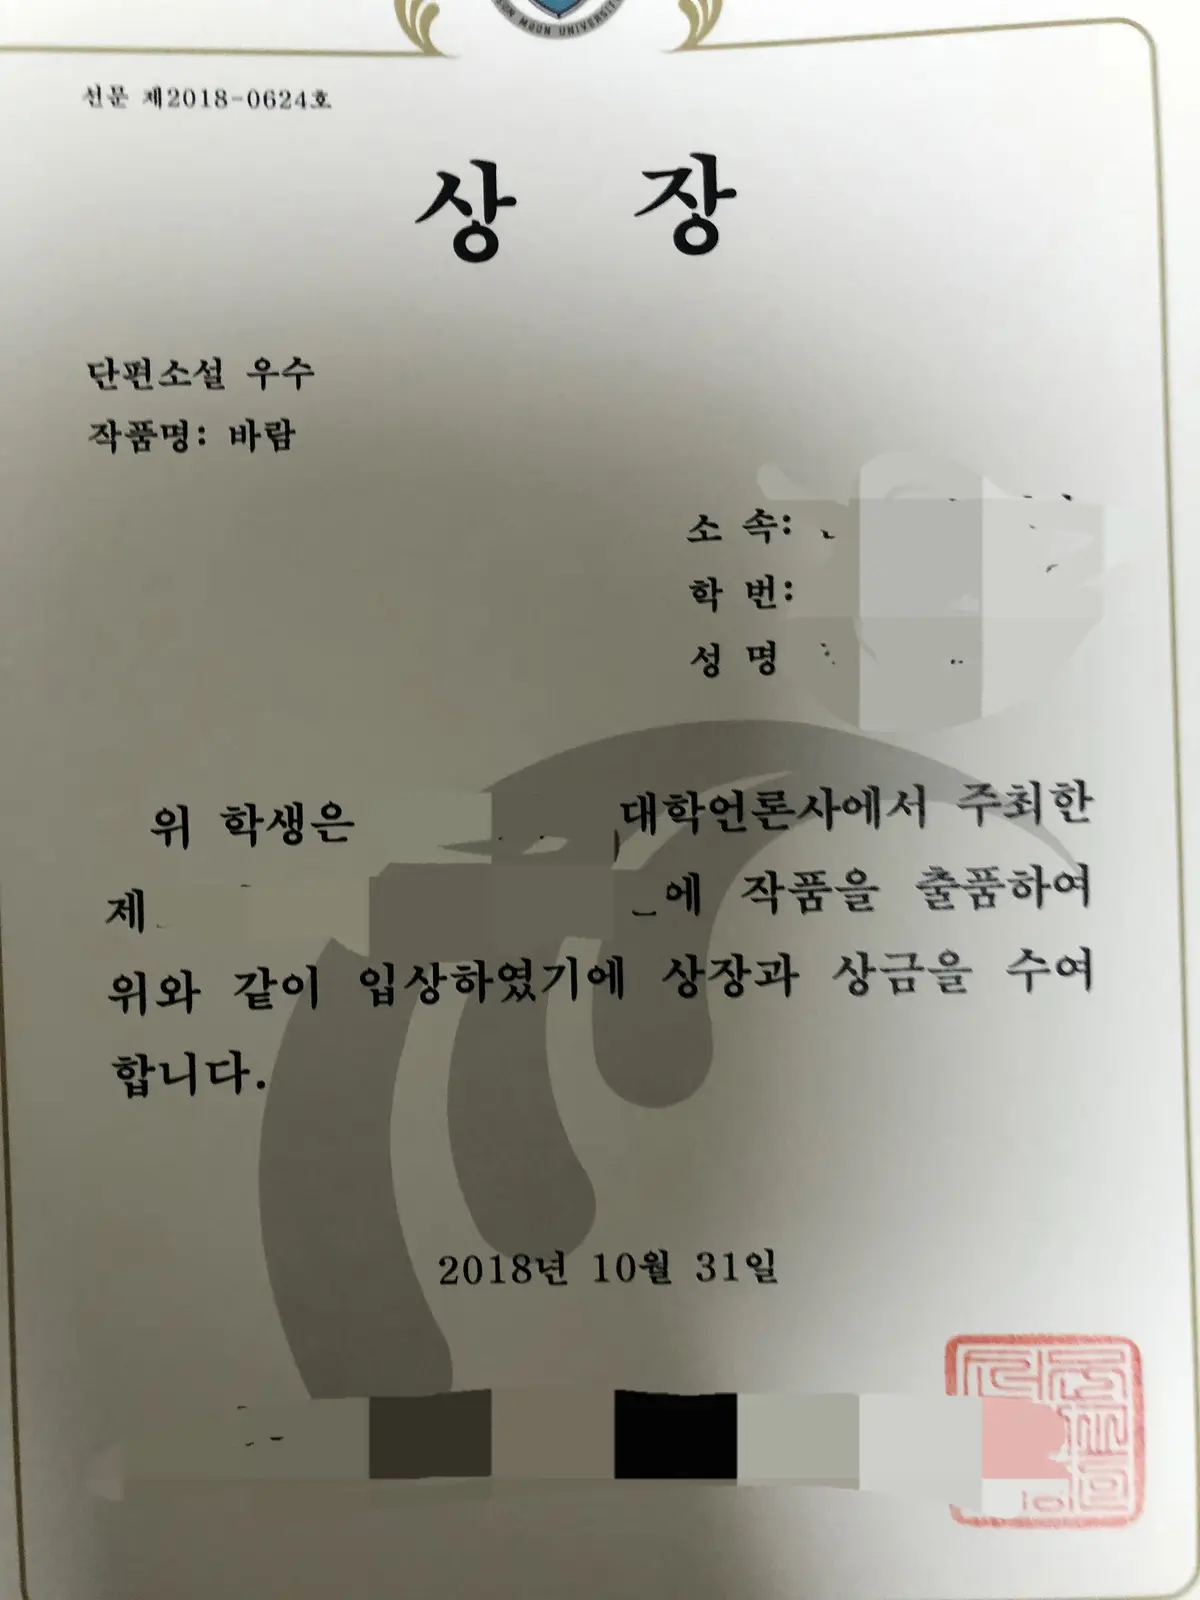 SUN MOON UNIVERSITY
선문 제2018-0624호
상 장
단편소설 우수
작품명: 바람
소 속:
학 번:
성 명 :
위 학생은 대학언론사에서 주최한
제 에 작품을 출품하여
위와 같이 입상하였기에 상장과 상금을 수여
합니다.
2018년 10월 31일